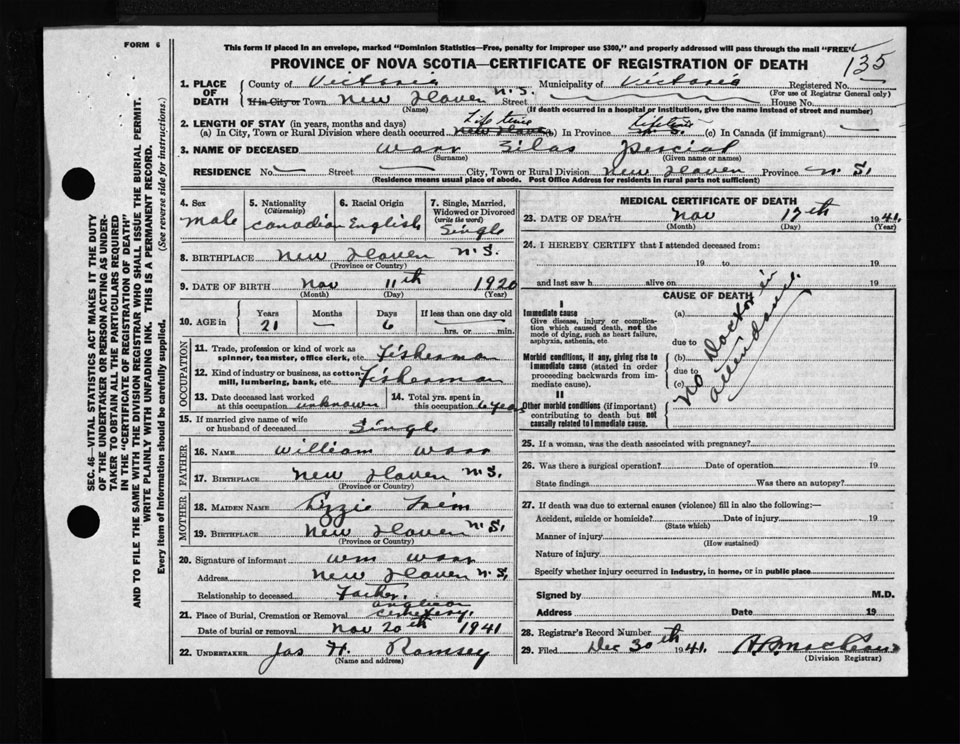 FORM 6
This form if placed in an envelope, marked "Dominion Statistics—Free, penalty for improper use $300," and properly addressed will pass through the mail "FREE"
135
PROVINCE OF NOVA SCOTIA—CERTIFICATE OF REGISTRATION OF DEATH
1. PLACE OF DEATH County of Victoria Municipality of Victoria Registered No.
(For use of Registrar General only)
If in City or Town New Haven N.S. Street House No.
(Name) (If death occurred in a hospital or institution, give the name instead of street and number)
2. LENGTH OF STAY (in years, months and days)
(a) In City, Town or Rural Division where death occurred Life time New Haven (b) In Province Life time N.S. (c) In Canada (if immigrant)
3. NAME OF DECEASED Warr Silas
(Surname) (Given name or names)
RESIDENCE No. Street City, Town or Rural Division New Haven Province N.S.
(Residence means usual place of abode. Post Office Address for residents in rural parts not sufficient)
4. Sex Male
5. Nationality (Citizenship) Canadian
6. Racial Origin English
7. Single, Married, Widowed or Divorced (write the word) Single
8. BIRTHPLACE New Haven N.S.
(Province or Country)
9. DATE OF BIRTH Nov 11th 1920
(Month) (Day) (Year)
10. AGE in Years 21 Months — Days 6 If less than one day old hrs. or min.
OCCUPATION
11. Trade, profession or kind of work as spinner, teamster, office clerk, etc. Fisherman
12. Kind of industry or business, as cotton-mill, lumbering, bank, etc. Fisherman
13. Date deceased last worked at this occupation unknown
14. Total yrs. spent in this occupation 6 Years
15. If married give name of wife or husband of deceased Single
FATHER
16. NAME William Warr
17. BIRTHPLACE New Haven N.S.
(Province or Country)
MOTHER
18. MAIDEN NAME Lizzie
19. BIRTHPLACE New Haven N.S.
(Province or Country)
20. Signature of informant Wm Warr
Address New Haven N.S.
Relationship to deceased Father.
21. Place of Burial, Cremation or Removal Anglican Cemetery.
Date of burial or removal Nov 20th 1941
22. UNDERTAKER Jas H. Ramsey
(Name and address)
MEDICAL CERTIFICATE OF DEATH
23. DATE OF DEATH Nov 17th 1941
(Month) (Day) (Year)
24. I HEREBY CERTIFY that I attended deceased from:
19 to 19
and last saw h alive on 19
CAUSE OF DEATH
I
Immediate cause
Give disease, injury or complication which caused death, not the mode of dying, such as heart failure, asphyxia, asthenia, etc.
(a)
due to
Morbid conditions, if any, giving rise to immediate cause (stated in order proceeding backwards from immediate cause).
(b)
due to
(c)
II
Other morbid conditions (if important) contributing to death but not causally related to immediate cause.
No Doctor in attendance.
25. If a woman, was the death associated with pregnancy?
26. Was there a surgical operation? Date of operation 19
State findings Was there an autopsy?
27. If death was due to external causes (violence) fill in also the following:—
Accident, suicide or homicide? Date of injury 19
(State which)
Manner of injury
(How sustained)
Nature of injury
Specify whether injury occurred in industry, in home, or in public place
Signed by M.D.
Address Date 19
28. Registrar's Record Number
29. Filed Dec 30th 1941.
(Division Registrar)
SEC. 46—VITAL STATISTICS ACT MAKES IT THE DUTY
OF THE UNDERTAKER OR PERSON ACTING AS UNDER-
TAKER TO OBTAIN ALL THE PARTICULARS REQUIRED
IN THE "CERTIFICATE OF REGISTRATION OF DEATH"
AND TO FILE THE SAME WITH THE DIVISION REGISTRAR WHO SHALL ISSUE THE BURIAL PERMIT.
WRITE PLAINLY WITH UNFADING INK. THIS IS A PERMANENT RECORD.
Every item of information should be carefully supplied. (See reverse side for instructions.)